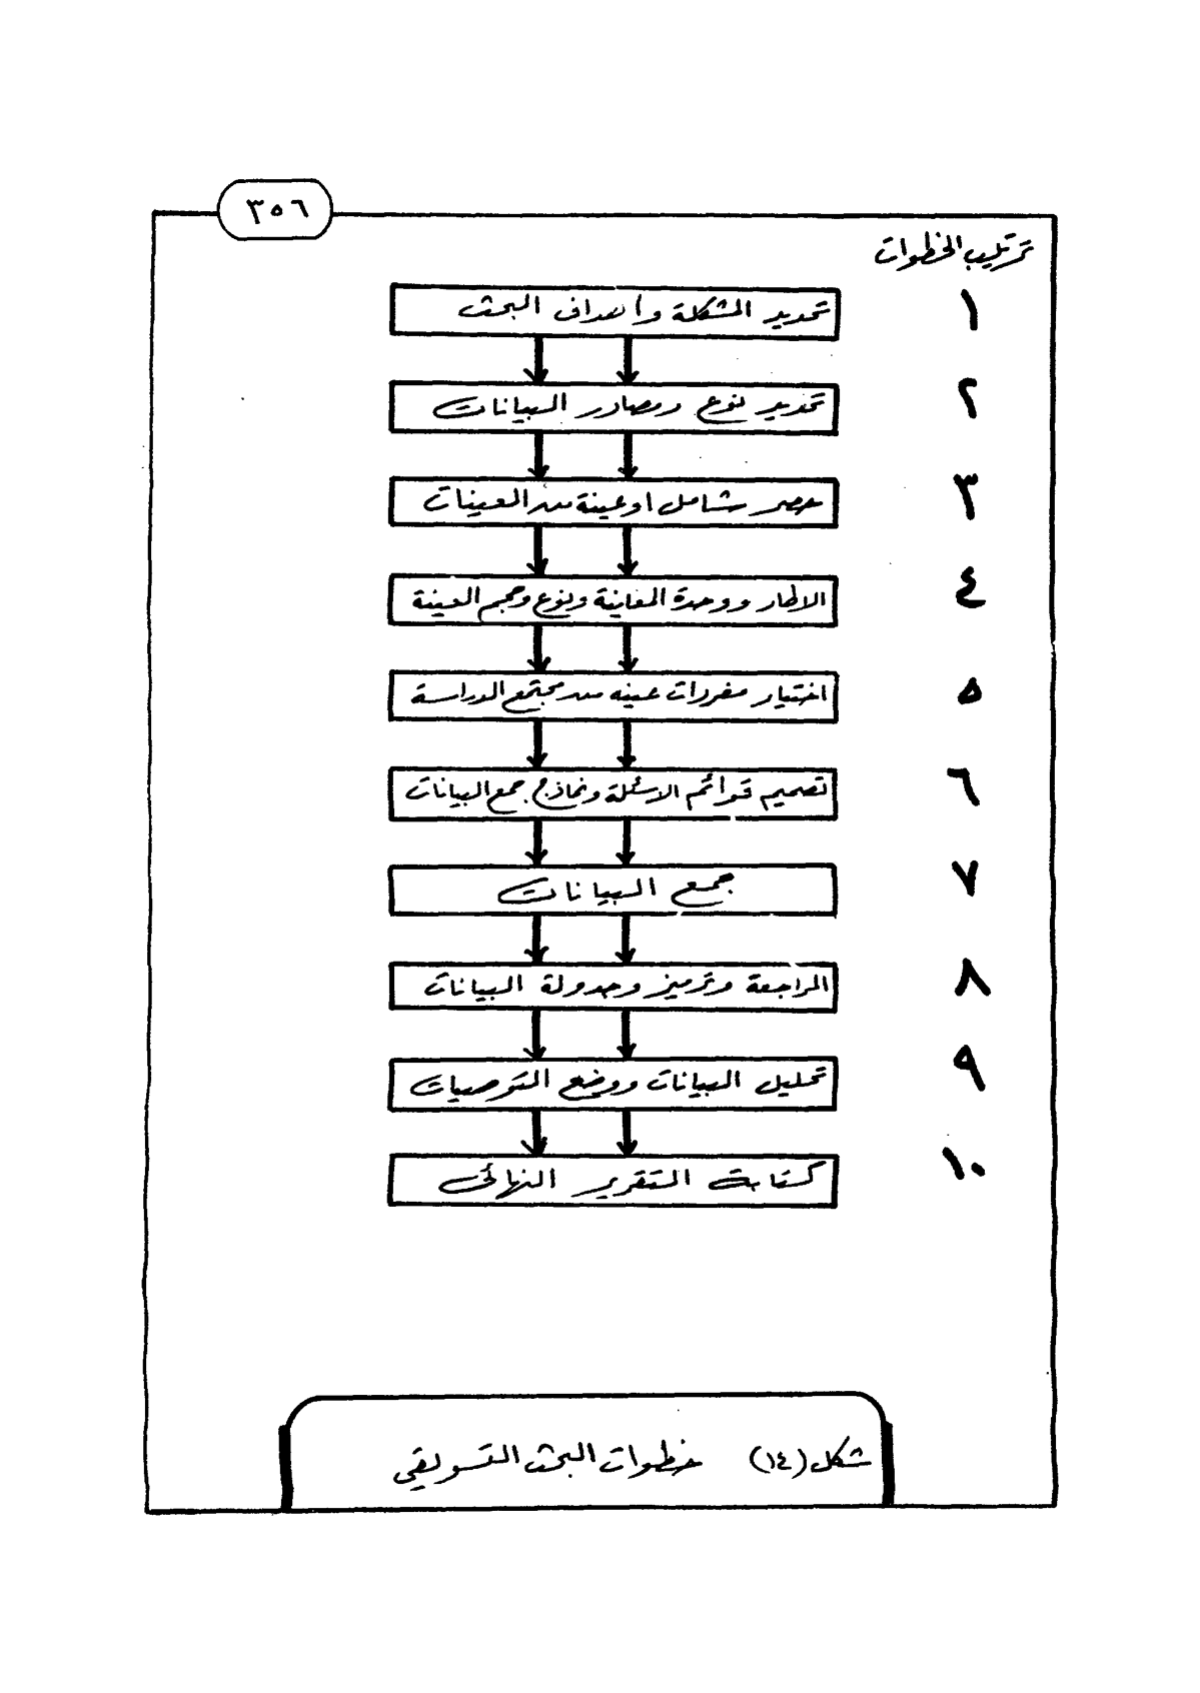 ٣٥٦
ترتيب الخطوات
١ تحديد المشكلة وأهداف البحث
٢ تحديد نوع ومصادر البيانات
٣ حصر شامل او عينة من العينات
٤ الاطار ووحدة المعاينة ونوع وحجم العينة
٥ اختيار مفردات عينه من مجتمع الدراسة
٦ تصميم قوائم الاسئلة ونماذج جمع البيانات
٧ جمع البيانات
٨ المراجعة وترميز وجدولة البيانات
٩ تحليل البيانات ووضع التوصيات
١٠ كتابة التقرير النهائى
شكل (١٤) خطوات البحث التسويقى